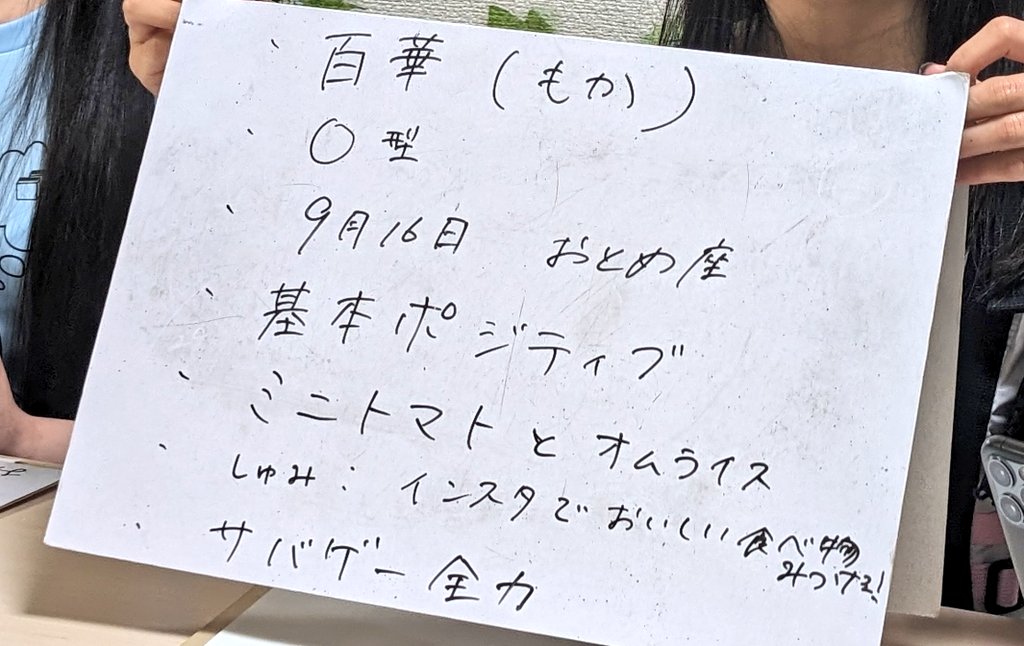 、百華(もか)
、〇型
、9月16日 おとめ座
、基本ポジティブ
、ミニトマトとオムライス
、しゅみ: インスタでおいしい食べ物
みつける!
、サバゲー全力